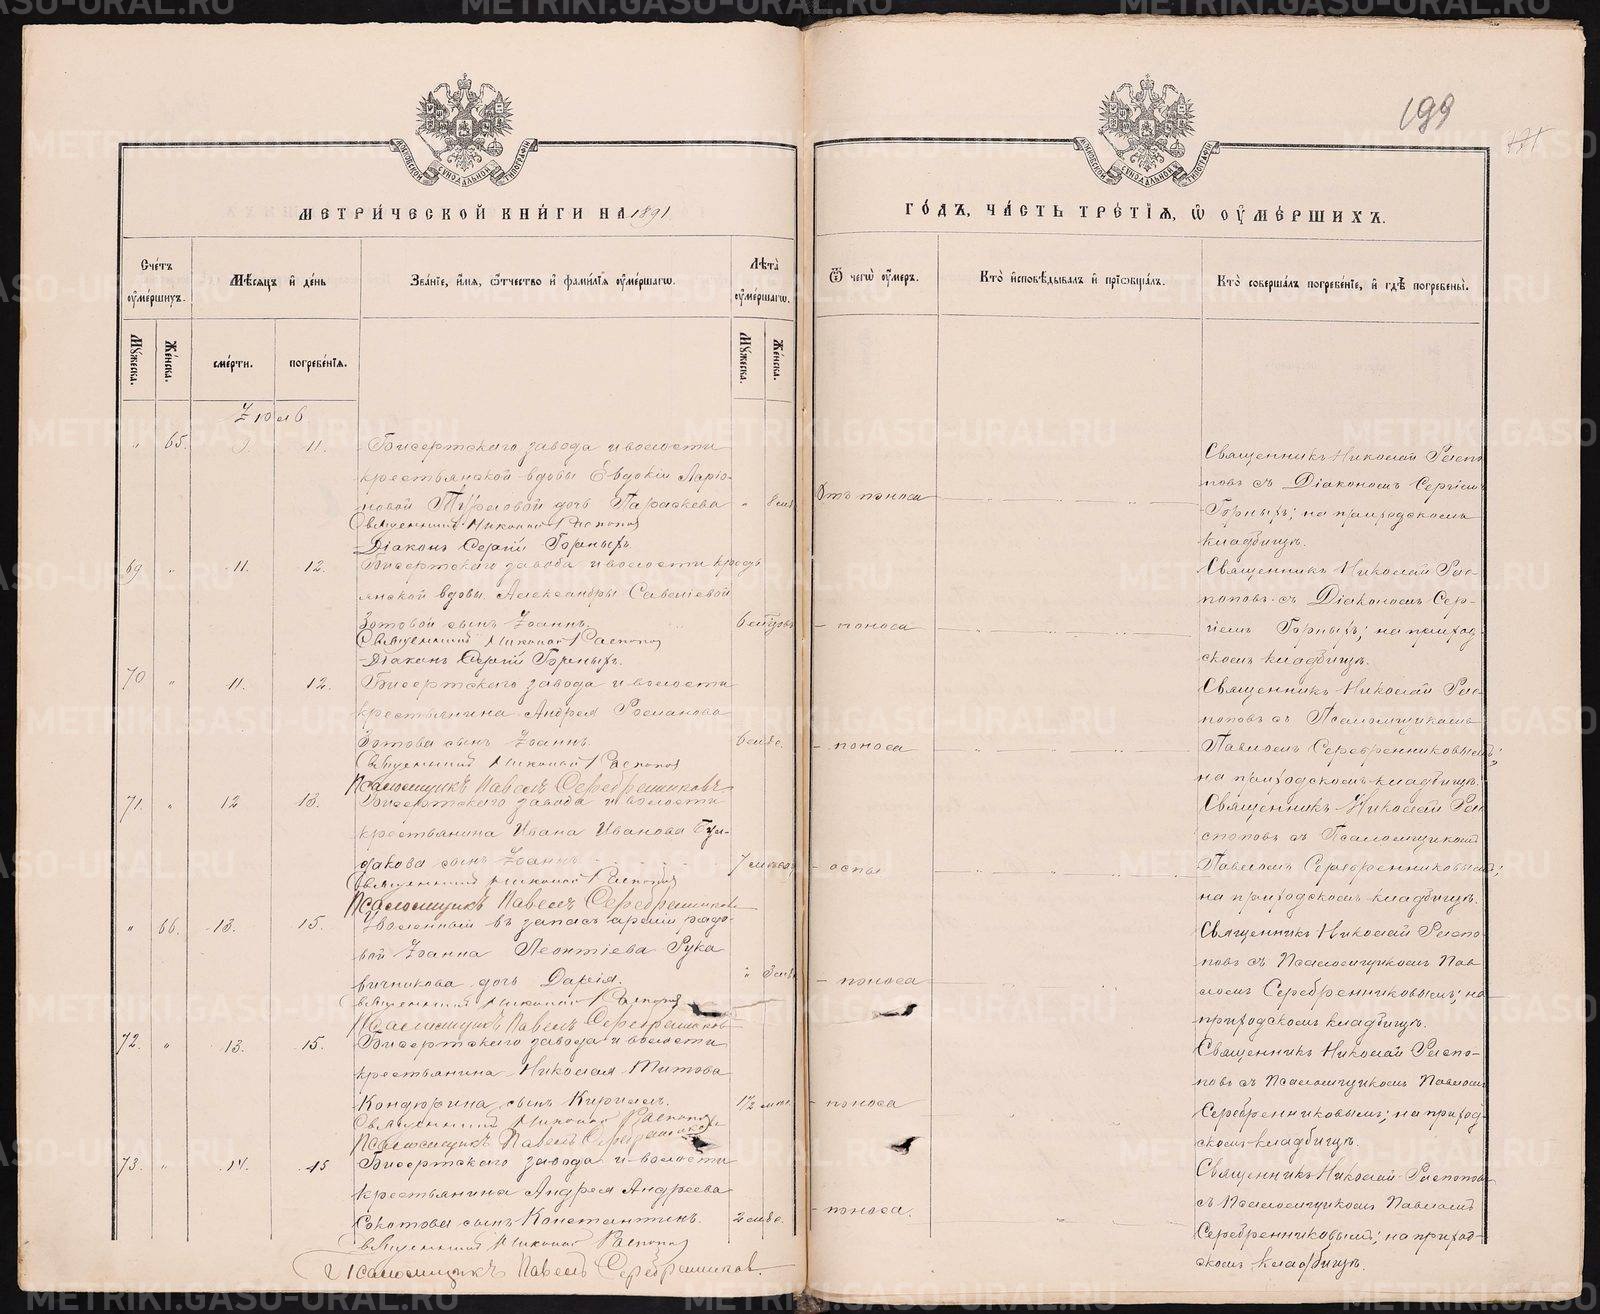 199
МЕТРИ́ЧЕСКОЙ КНИ́ГИ НА 1891
ГО́ДЪ, ЧА́СТЬ ТРЕ́ТІЯ, Ѿ ОУМЕ́РШИХЪ.
Сче́тъ оумершихъ.
Мѣсяцъ и день
Зва́ніе, имя, о́тчество и фами́лія оуме́ршагѡ.
Лѣта̀ оуме́ршагѡ.
Ѿ чегѡ̀ оумеръ.
Кто̀ исповѣдывалъ и пріѡбща́лъ.
Кто̀ соверша́лъ погребе́ніе, и гдѣ̀ погребены̀.
Мꙋ́жеска.
Же́нска.
сме́рти.
погребе́нія.
Мꙋ́жеска.
Же́нска.
Іюль
" 65. 9. 11. Бисертскаго завода и волости
крестьянской вдовы Евдокіи Ларіо-
новой дочь Параскева " 8 Отъ поноса
Священникъ Николай Распоповъ
Діаконъ Сергій Горныхъ.
Священникъ Николай Распо-
повъ съ Діакономъ Сергіемъ
Горныхъ; на приходскомъ
кладбищѣ.
69 " 11. 12. Бисертскаго завода и волости крестъ
янской вдовы Александры Савеліевой
Зотовой сынъ Іоаннъ. 6 - поноса
Священникъ Николай Распоповъ
Діаконъ Сергій Горныхъ.
Священникъ Николай Рас-
поповъ съ Діакономъ Сер-
гіемъ Горныхъ; на приход-
скомъ кладбищѣ.
70 " 11. 12. Бисертскаго завода и волости
крестьянина Андрея Романова
Зотова сынъ Іоаннъ. 6 - поноса
Священникъ Николай Распоповъ
Псаломщикъ Павелъ Серебрениковъ
Священникъ Николай Рас-
поповъ съ Псаломщикомъ
Павломъ Серебренниковымъ;
на приходскомъ кладбищѣ.
71. " 12 13. Бисертскаго завода и волости
крестьянина Ивана Иванова
сынъ Іоаннъ 7 - оспы
Священникъ Николай Распоповъ
Псаломщикъ Павелъ Серебрениковъ
Священникъ Николай Рас
поповъ съ Псаломщикомъ
Павломъ Серебренниковымъ;
на приходскомъ кладбищѣ.
" 66. 13. 15. Уволенный въ запасъ арміи рядо-
вой Іоанна Леонтіева Рука
вичникова дочь Дарія. " 3 - поноса
Священникъ Николай Распоповъ
Псаломщикъ Павелъ Серебрениковъ
Священникъ Николай Распо
повъ съ Псаломщикомъ Пав
ломъ Серебренниковымъ; на
приходскомъ кладбищѣ.
72. " 13. 15. Бисертскаго завода и волости
крестьянина Николая Титова
Кондюрина сынъ Кириллъ. 1½ - поноса
Священникъ Николай Распоповъ
Псаломщикъ Павелъ Серебрениковъ
Священникъ Николай Распо-
повъ съ Псаломщикомъ Павломъ
Серебренниковымъ; на приход-
скомъ кладбищѣ.
73. " 14. 15 Бисертскаго завода и волости
крестьянина Андрея Андреева
сынъ Константинъ. 2 - поноса.
Священникъ Николай Распоповъ
Псаломщикъ Павелъ Серебрениковъ.
Священникъ Николай Распоповъ
съ Псаломщикомъ Павломъ
Серебренниковымъ; на приход-
скомъ кладбищѣ.
METRIKI.GASO-URAL.RU